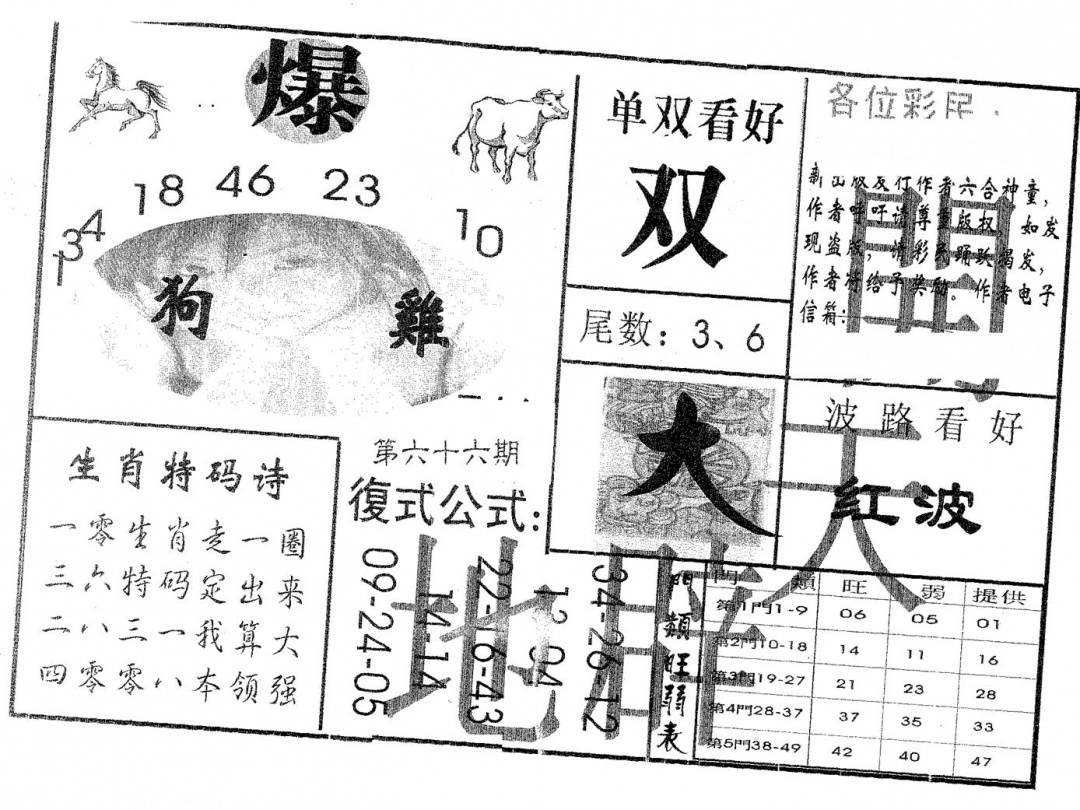 爆
18 46 23
34 10
1
狗 雞
单双看好
双
尾数：3、6
各位彩民
作者六合神童，
作者呼吁请尊重版权 如发
现盗版，请彩民踊跃揭发，
作者将给予奖励. 作者电子
信箱：
大
波路看好
红波
生肖特码诗
一零生肖走一圈
三六特码定出来
二八三一我算大
四零零八本领强
第六十六期
復式公式：
09-24-05
14-14
22-16-43
12 04
34-26-12
門類旺弱表
門類 旺 弱 提供
第1門1-9 06 05 01
第2門10-18 14 11 16
第3門19-27 21 23 28
第4門28-37 37 35 33
第5門38-49 42 40 47